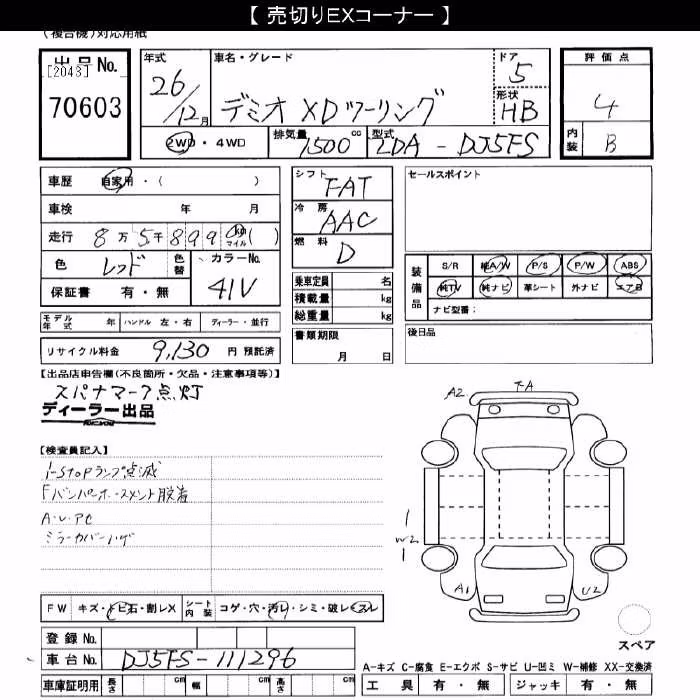 【 売切りEXコーナー 】
(複合機)対応用紙
出品No.
[2043]
70603
年式
26/12月
車名・グレード
デミオ XDツーリング
ドア
5
形状
HB
2WD・4WD
排気量
1500cc
型式
LDA-DJ5FS
評価点
4
内装
B
車歴 自家用・( )
車検 年 月
走行 8万5千899 km マイル ( )
色 レッド 色替
カラーNo.
41V
保証書 有・無
シフト
FAT
冷房
AAC
燃料
D
乗車定員 名
積載量 kg
総重量 kg
セールスポイント
装備品
S/R 純A/W P/S P/W ABS
純TV 純ナビ 革シート 外ナビ エアB
ナビ型番:
モデル年式 年 ハンドル 左・右 ディーラー・並行
リサイクル料金 9,130 円 預託済
書類期限
月 日
後日品
【出品店申告欄(不良箇所・欠品・注意事項等)】
スパナマーク点灯
ディーラー出品
【検査員記入】
i-STOPランプ点滅
A・U・PC
ミラーカバーハゲ
A2
1
W2
1
A1
U2
FW キズ・トビ石・割レX
シート内装 コゲ・穴・汚レ・シミ・破レ・スレ
登録No.
車台No. DJ5FS-111296
車庫証明用 長さ cm 幅 cm 高さ cm
スペア
A-キズ C-腐食 E-エクボ S-サビ U-凹ミ W-補修 XX-交換済
工具 有・無 ジャッキ 有・無